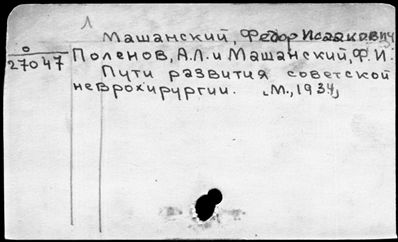 1
Машанский, Федор Исаакович
о
27047
Поленов, А.Л. и Машанский, Ф.И.
Пути развития советской
неврохирургии. [М., 1934]